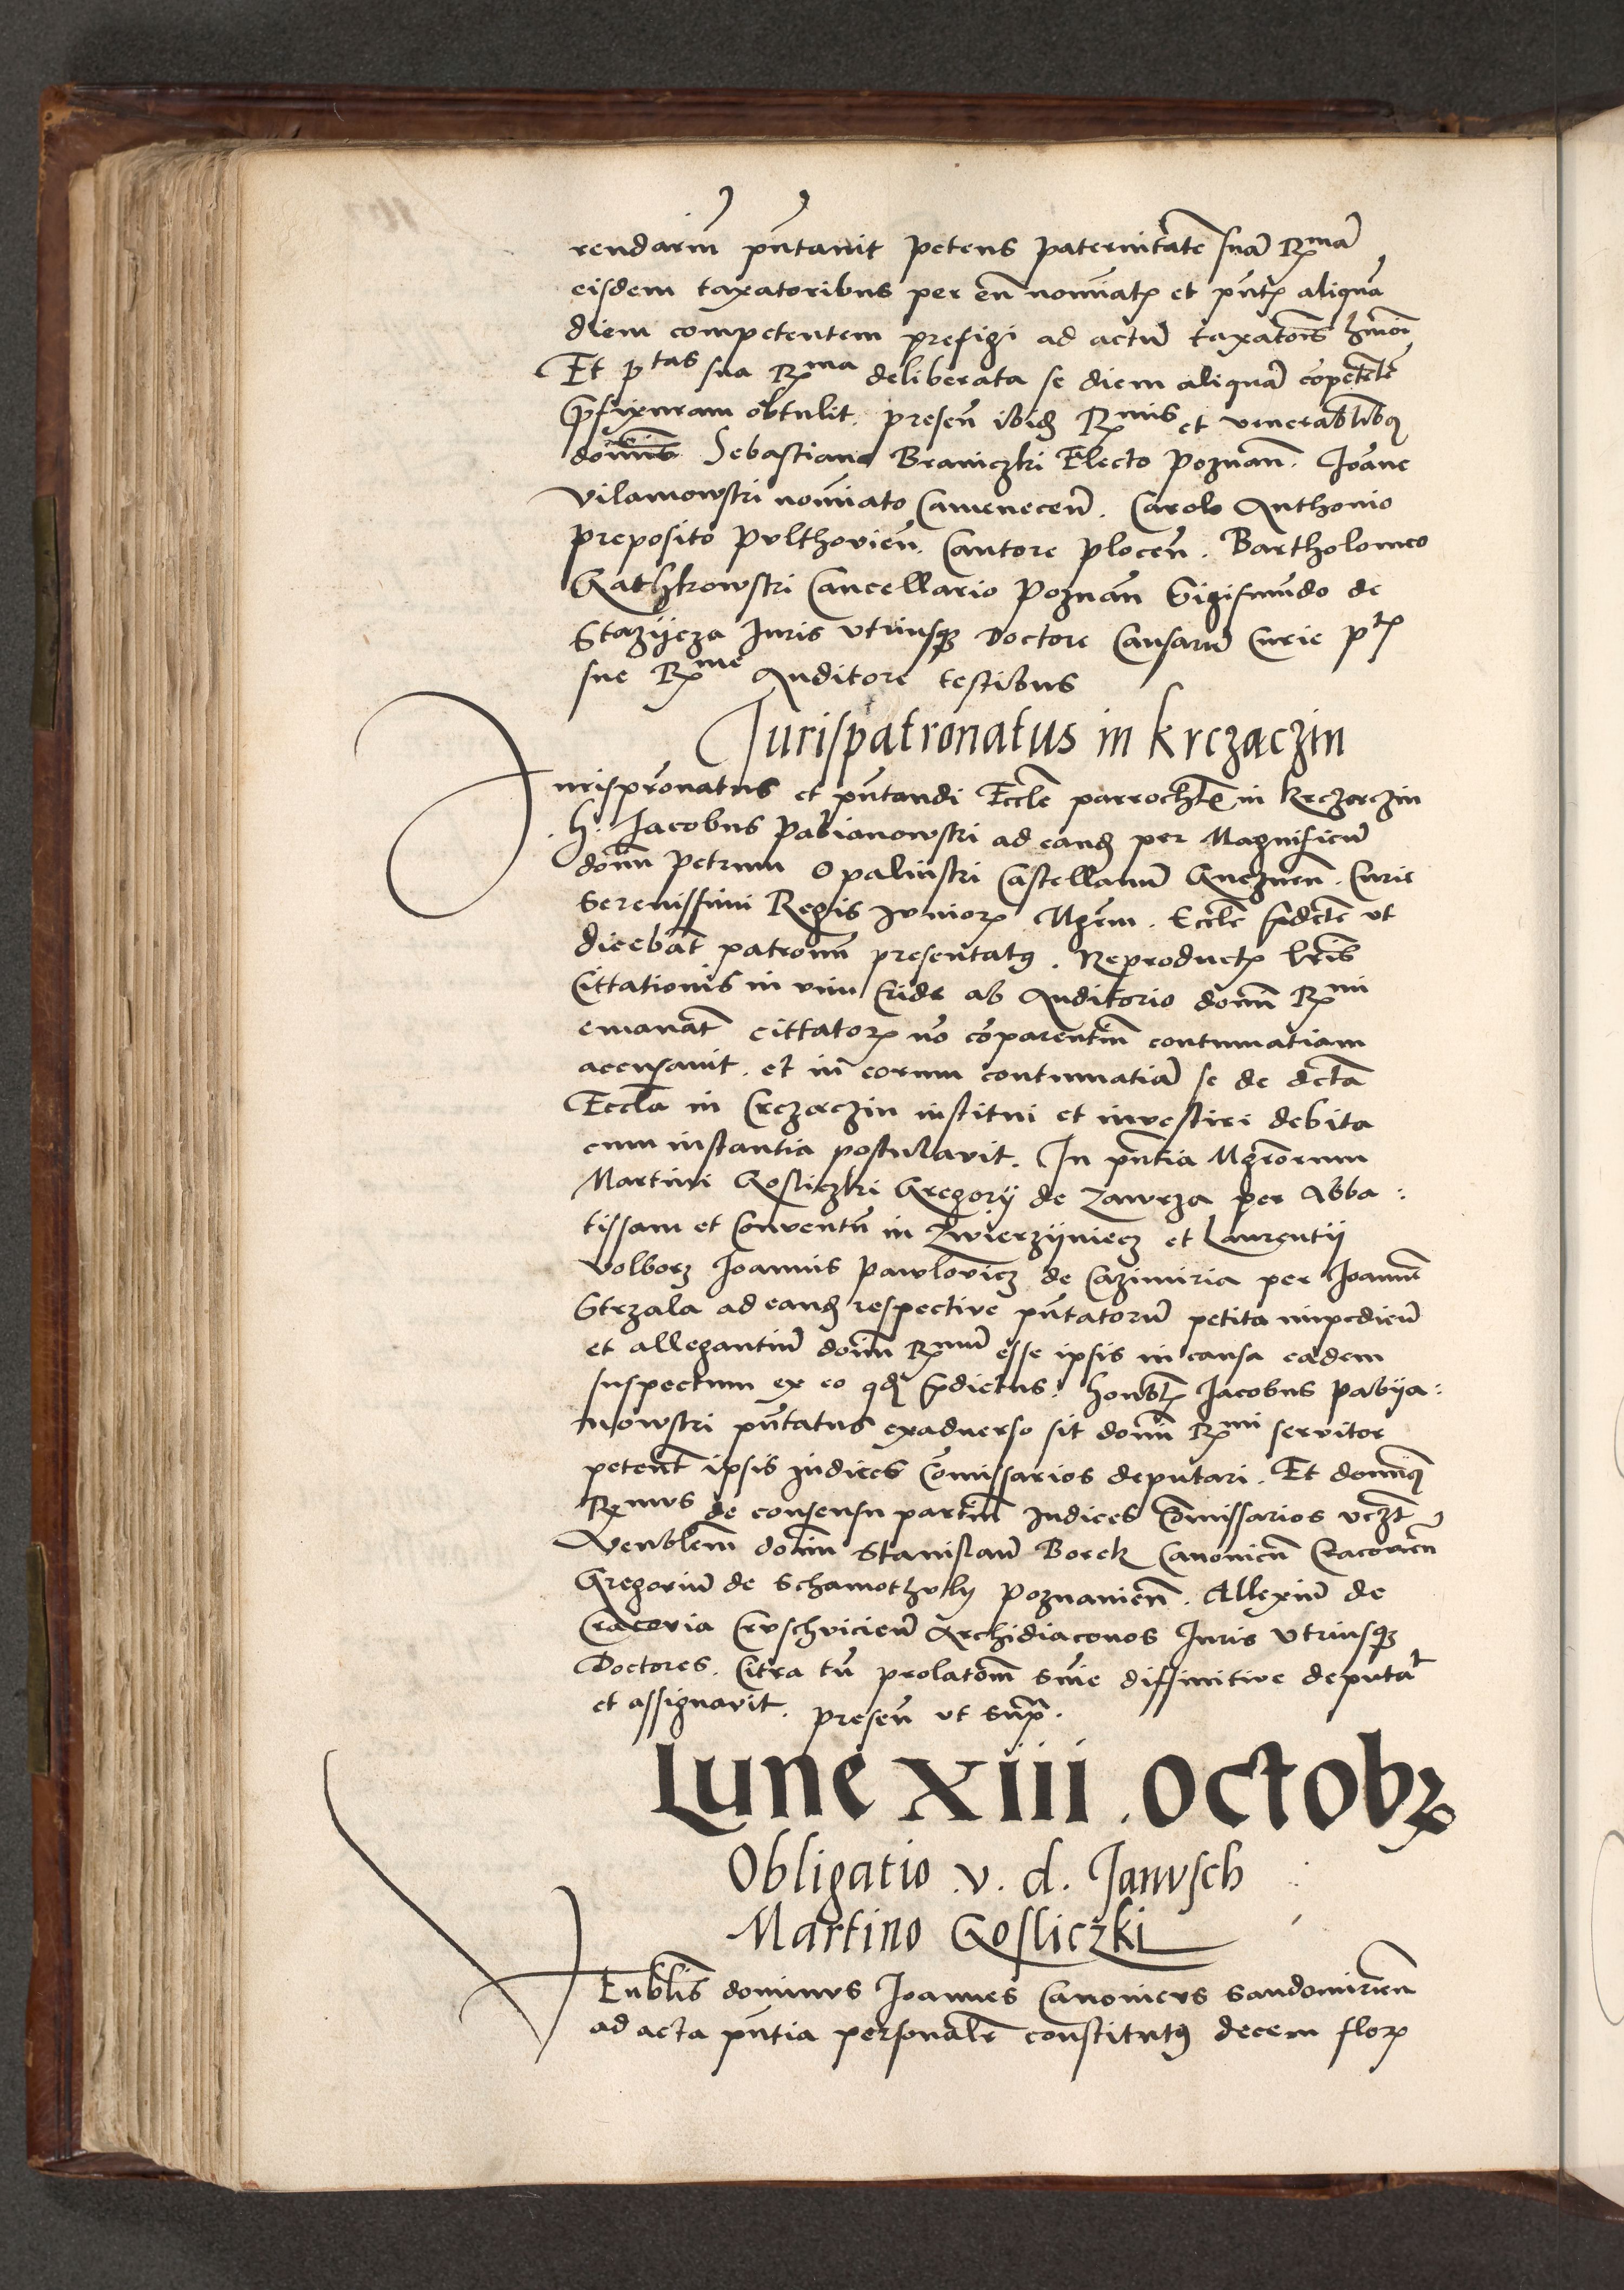 rendariu͂ pn͂tauit petens paternitate͂ sua͂ Rꝫma͂
eisdem taxatoribus per eu͂ no͂i͂atꝫ et pn͂tꝫ aliqua͂
diem competentem prefigi ad actu͂ taxato͂is hm͂oi͂
Et ptas sua Rꝫma deliberata se diem aliqua͂ co͂pete͂te͂
p͂fixuram obtulit. presen͂ ibid͂ Rꝫmis et venerablib͂ꝫ
do͂i͂nis Sebastiano Braniczki Electo Poznan͂. Joa͂ne
Vilamowski no͂i͂ato Camenecen͂. Carolo Anthonio
preposito Pulthovien͂. Cantore Plocen͂. Bartholomeo
Gathkowski Cancellario Poznan͂ Sigismu͂do de
Stazijcza Juris vtriusqꝫ Doctore Causaru͂ Curie ptꝫ
sue Rꝫme Auditore testibus
Jurispatronatus in krczaczin
Jurispr͂onatus et pn͂tandi Eccle͂ parrochle͂ in krczaczin
. h. Jacobus Pabianowski ad eand͂ per Magnificu͂
do͂nu͂ Petrum Opalinski Castellanu͂ Gneznen͂. Curie
Serenissimi Regis Junior͂ꝫ Mgr͂m. Eccle͂ p͂dicte͂ vt
dicebat͂ patronu͂ presentatꝯ. Reproductꝫ lr͂is
Cittationis in vim Cride ab Auditorio do͂ni͂ Rꝫmi
emanat͂ cittatorꝫ no͂ co͂parentiu͂ contumatiam
accusauit. et in͂ eorum contumatia͂ se de dicta͂
Eccl͂a in Crczaczin institui et investiri debita
cum instantia postulavit. In pn͂tia Mgr͂orum
Martini Gosliczki Gregorij de Zawrza per Abba:
tissam et Conventu͂ in Zwierzijniecz et Laurentij
Volborz Joannis Pawlovicz de Cazimiria per Joanne͂
Strzala ad eand͂ respective pn͂tatoru͂ petita impedien͂
et allegantiu͂ do͂nu͂ Rꝫmu͂ esse ipsis in causa eadem
suspectum ex eo qd͂ p͂dictus: honbl͂ꝫ Jacobus Pabija:
nowski pn͂tatus exaduerso sit do͂ni͂ Rꝫmi servitor
petent͂ ipsis judices Co͂missarios deputari. Et do͂nusqꝫ
Rꝫmus de consensu partiu͂ Judices Co͂missarios vczt͂
Venblem͂ do͂nu͂ Stanislau͂ Borek Canonicu͂ Cracovien͂
Gregoriu͂ de Schamothuly Poznanien͂. Allexiu͂ de
Cracovia Cruschvicien͂ Archidiaconos Juris vtriusqꝫ
Doctores. Citra tn͂ prolatom͂ sn͂ie diffinitive deputat͂
et assignavit. presen͂ vt supra͂.
Lune xiii . octobꝫ
Obligatio v. d. Janusch
Martino Gosliczki
VEnblis͂ dominus Joannes Canonicus Sandomirien͂
ad acta pn͂tia personalr͂ constitutꝯ decem florꝫ